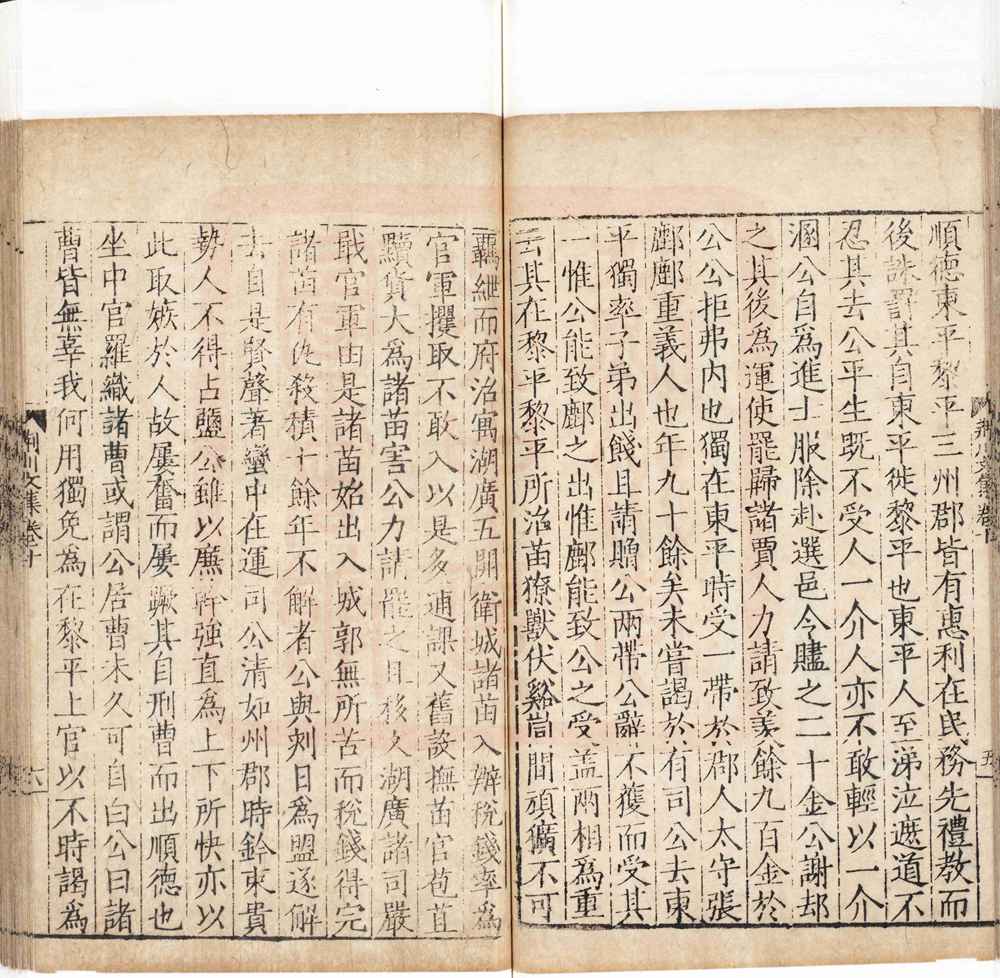 順德東平黎平三州郡皆有惠利在民務先禮教而
後誅罰其自東平徙黎平也東平人至涕泣遮道不
忍其去公平生既不受人一介人亦不敢輕以一介
溷公自為進士服除赴選邑令贐之二十金公謝却
之其後為運使罷歸諸賈人力請致羨餘九百金於
公公拒弗内也獨在東平時受一帶於郡人太守張
鄜鄜重義人也年九十餘矣未嘗謁於有司公去東
平獨率子弟出餞且請贈公兩帶公辭不獲而受其
一惟公能致鄜之出惟鄜能致公之受蓋兩相為重
云其在黎平黎平所治苗獠獸伏谿峝間頑獷不可
荆川文集卷十
五
羈紲而府治寓湖廣五開衛城諸苗入辦稅錢率為
官軍攫取不敢入以是多逋課又舊設撫苗官苞苴
黷貨大為諸苗害公力請罷之且移文湖廣諸司嚴
戢官軍由是諸苗始出入城郭無所苦而稅錢得完
諸苗有仇殺積十餘年不解者公與刻日為盟遂解
去自是賢聲著蠻中在運司公清如州郡時鈐束貴
勢人不得占鹽公雖以廉幹強直為上下所快亦以
此取嫉於人故屢奮而屢蹶其自刑曹而出順德也
坐中官羅織諸曹或謂公居曹未久可自白公曰諸
曹皆無辜我何用獨免為在黎平上官以不時謁為
荆川文集卷十
六